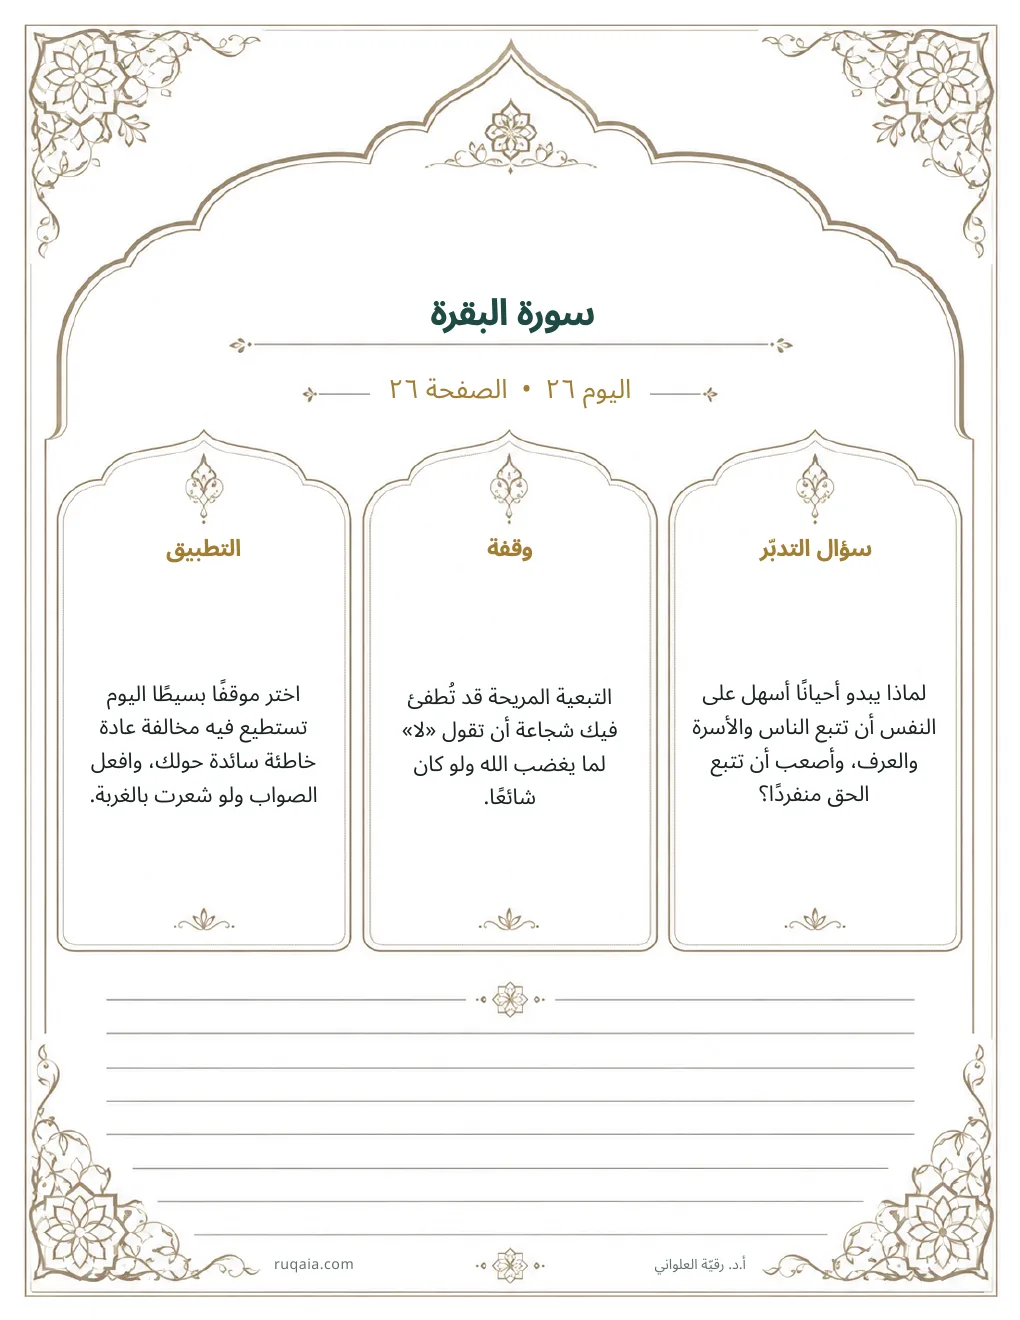 سورة البقرة
اليوم ٢٦ • الصفحة ٢٦
سؤال التدبّر
لماذا يبدو أحيانًا أسهل على
النفس أن تتبع الناس والأسرة
والعرف، وأصعب أن تتبع
الحق منفردًا؟
وقفة
التبعية المريحة قد تُطفئ
فيك شجاعة أن تقول «لا»
لما يغضب الله ولو كان
شائعًا.
التطبيق
اختر موقفًا بسيطًا اليوم
تستطيع فيه مخالفة عادة
خاطئة سائدة حولك، وافعل
الصواب ولو شعرت بالغربة.
أ.د. رقيّة العلواني
ruqaia.com